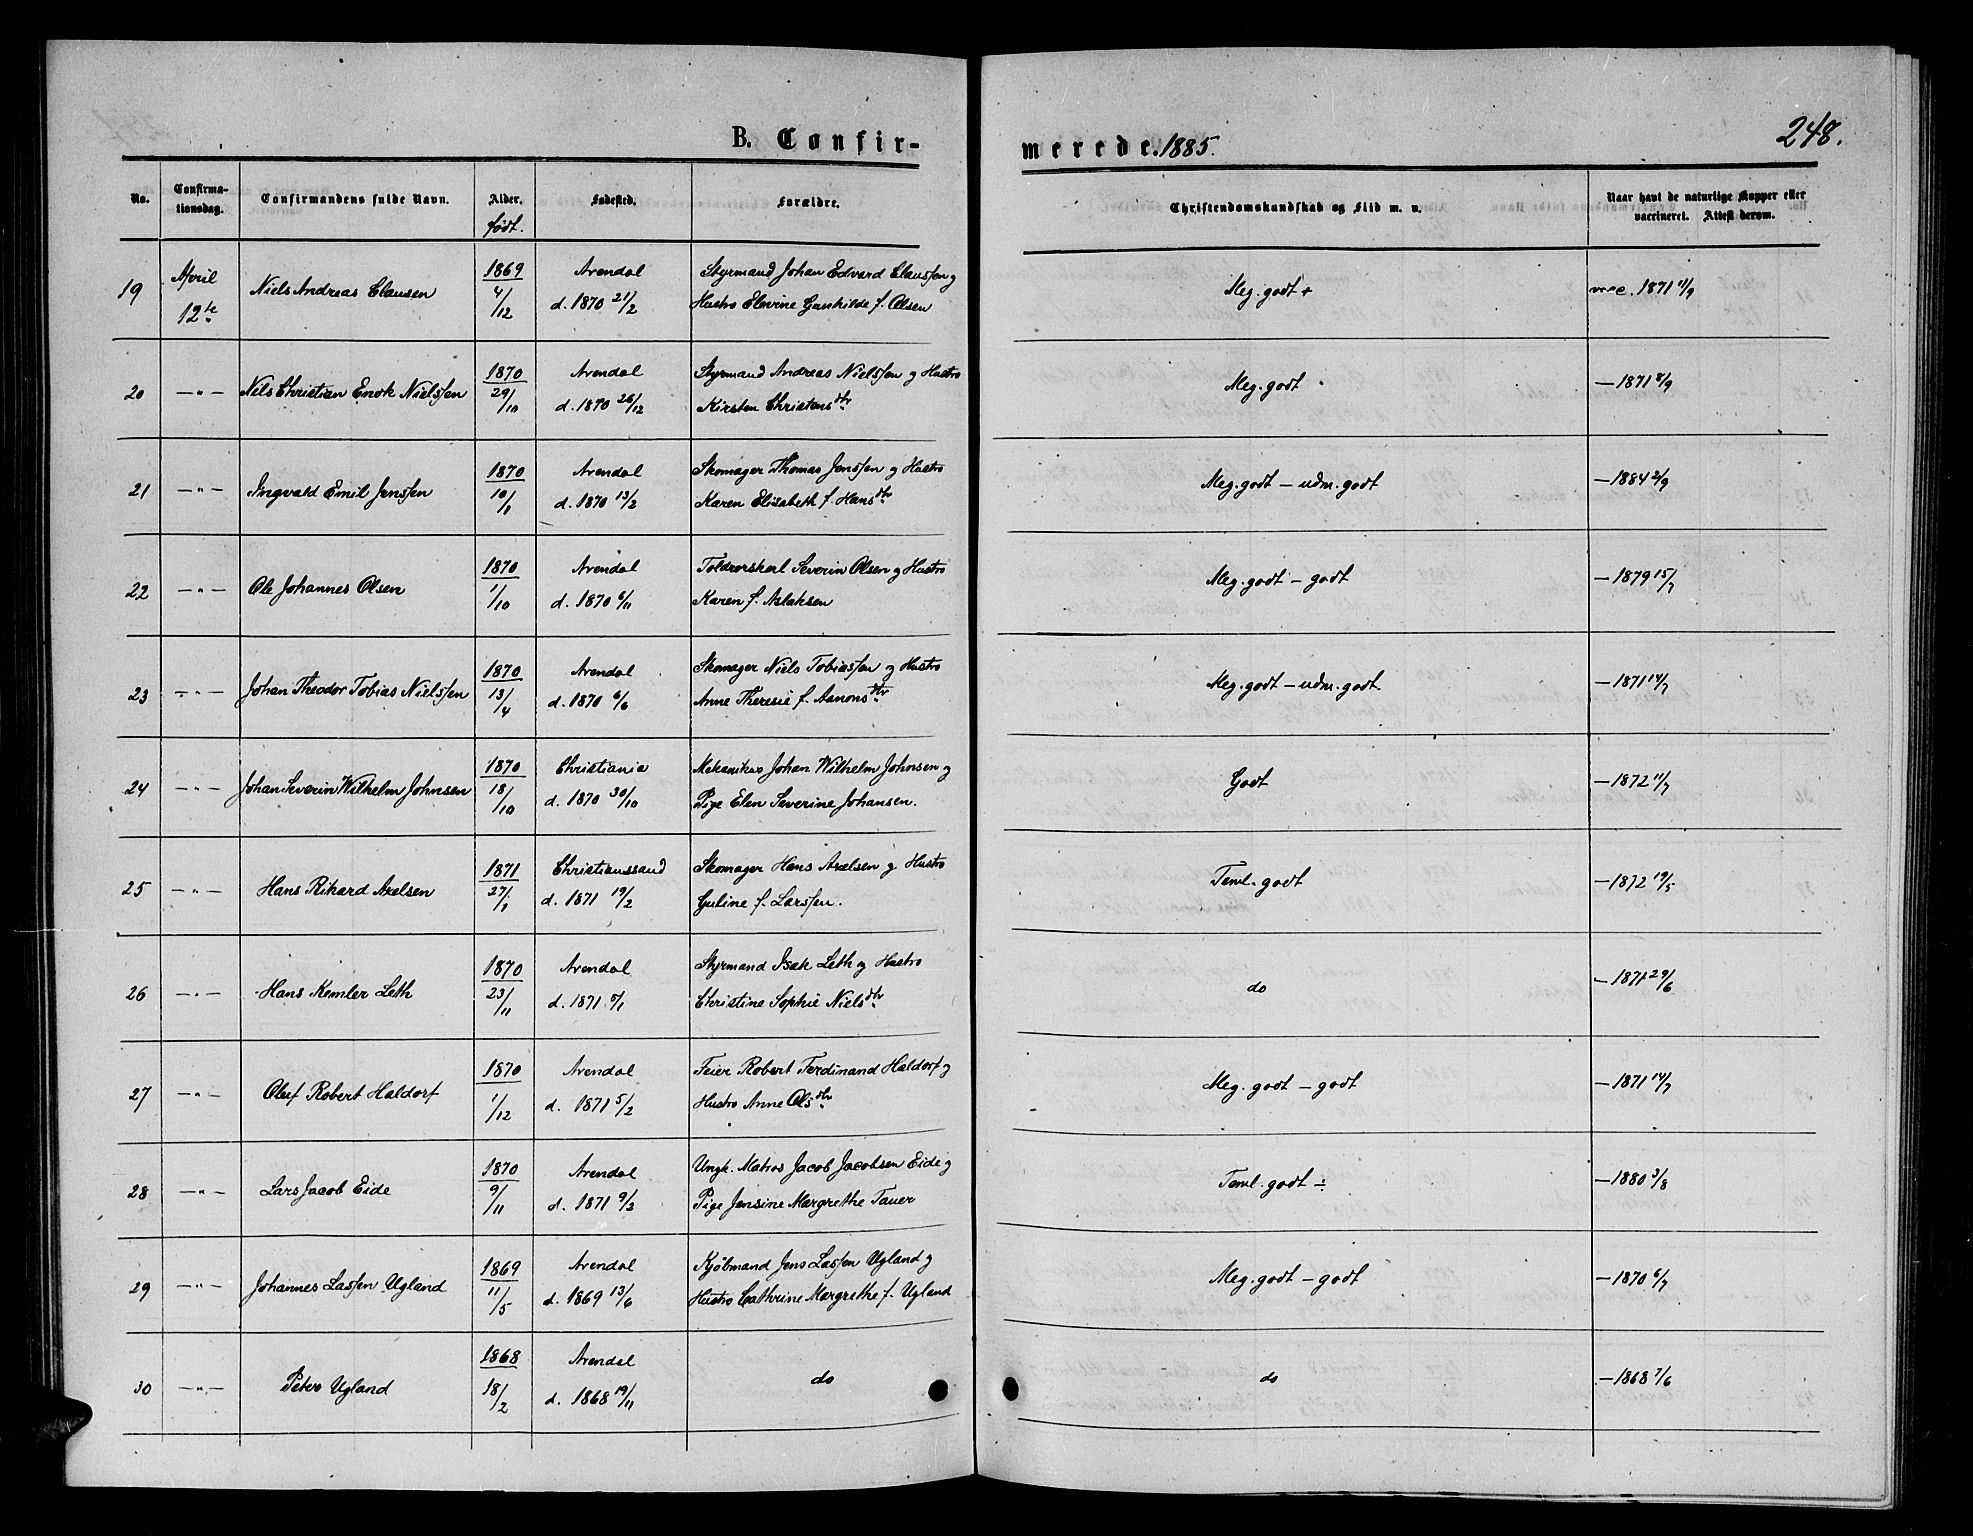 B. Confir-
merede. 1885.
248.
No.
Confirma-
tionsdag.
Confirmandens fulde Navn.
Alder.
født.
Fødested.
Forældre.
Christendomskundskab og Flid m. v.
Naar havt de naturlige Kopper eller
vaccineret. Attest derom.
19 April 12te Niels Andreas Clausen 1869 4/12 Arendal d. 1870 21/2
Styrmand Johan Edvard Claussen og
Hustro Elevine Gunhilde f. Olsen
Meg. godt + vacc. 1871 11/9
20 — „ — Nils Christian Enok Nielssen 1870 29/10 Arendal d. 1870 26/12
Styrmand Andreas Nielssen og Hustro
Kirsten Christensdtr
Meg. godt — 1871 8/9
21 — „ — Ingvald Emil Jenssen 1870 10/1 Arendal d. 1870 13/2
Skomager Thomas Jenssen og Hustro
Karen Elisabeth f. Hansdtr
Meg. godt — udm. godt — 1884 2/9
22 — „ — Ole Johannes Olsen 1870 1/10 Arendal d. 1870 6/11
Toldrorskarl Severin Olsen og Hustro
Karen f. Aslaksen
Meg. godt — godt — 1879 15/7
23 — „ — Johan Theodor Tobias Nielssen 1870 13/4 Arendal d. 1870 6/6
Skomager Niels Tobiassen og Hustro
Anne Theresie f. Aanonsdtr
Meg. godt — udm. godt — 1871 14/7
24 — „ — Johan Severin Wilhelm Johnsen 1870 18/10 Christiania d. 1870 30/10
Mekanikus Johan Wilhelm Johnsen og
Pige Elen Severine Johansen.
Godt — 1872 11/7
25 — „ — Hans Rikard Axelsen 1871 27/1 Christianssand d. 1871 19/2
Skomager Hans Axelsen og Hustro
Guline f. Larssen.
Teml. godt — 1872 19/5
26 — „ — Hans Kemler Leth 1870 23/11 Arendal d. 1871
Styrmand Isak Leth og Hustro
Christine Sophie Nielsdtr
do — 1871 29/6
27 — „ — Oluf Robert Haldorf 1870 1/12 Arendal d. 1871 5/2
Feier Robert Ferdinand Haldorf og
Hustro Anne Olsdtr
Meg. godt — godt — 1871 14/7
28 — „ — Lars Jacob Eide 1870 9/11 Arendal d. 1871 9/2
Ungk. Matros Jacob Jacobsen Eide og
Pige Jensine Margrethe Tauer
Teml. godt ÷ — 1880 3/8
29 — „ — Johannes Lassen Ugland 1869 11/5 Arendal d. 1869 13/6
Kjøbmand Jens Lassen Ugland og
Hustro Cathrine Margrethe f. Ugland
Meg. godt — godt — 1870 6/7
30 — „ — Peter Ugland 1868 18/2 Arendal d. 1868 19/11
do
do — 1868 7/6